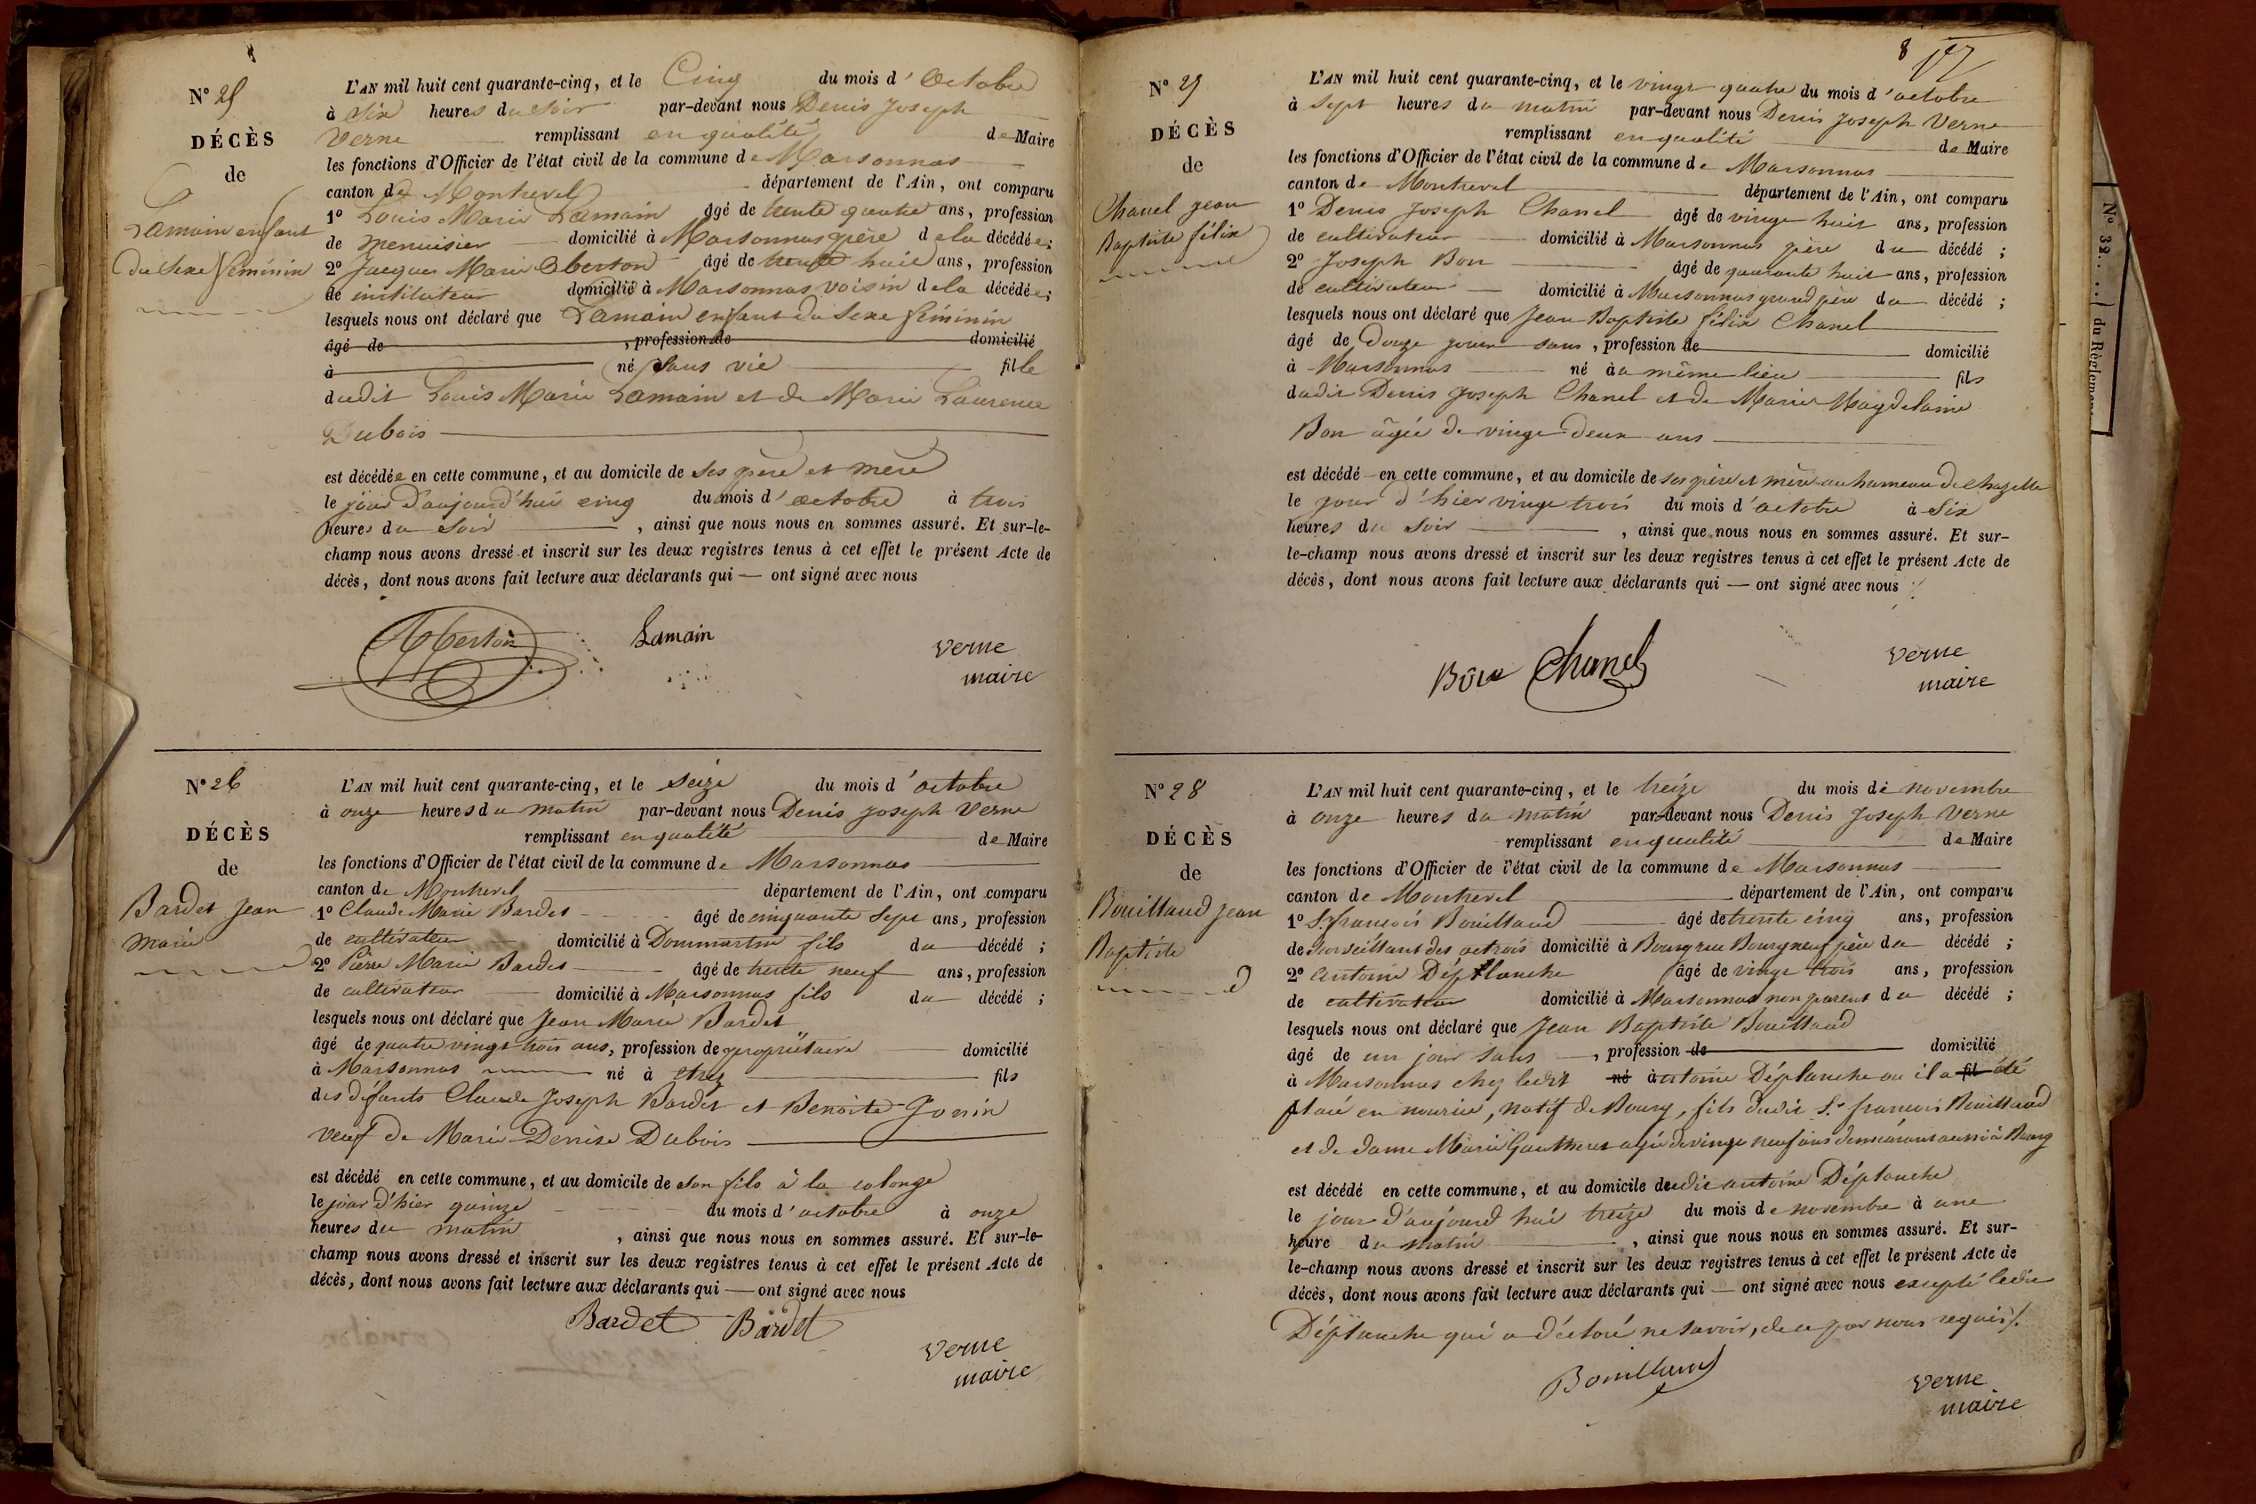 N° 25
DÉCÈS
de
Lamain enfant
du sexe féminin
L'AN mil huit cent quarante-cinq, et le Cinq du mois d'octobre
à six heures du soir par-devant nous Denis Joseph
Verne remplissant en qualité de Maire
les fonctions d'Officier de l'état civil de la commune de Marsonnas
canton de Montrevel département de l'Ain, ont comparu
1° Louis Marie Lamain âgé de trente quatre ans, profession
de menuisier domicilié à Marsonnas père de la décédée;
2° Jacques Marie Oberton âgé de trente huit ans, profession
de instituteur domicilié à Marsonnas voisin de la décédée;
lesquels nous ont déclaré que Lamain enfant du sexe féminin
âgé de , profession de domicilié
à né sans vie fille
dudit Louis Marie Lamain et de Marie Laurence
Dubois
est décédée en cette commune, et au domicile de ses père et mère
le jour d'aujourd'hui cinq du mois d'octobre à trois
heures du soir , ainsi que nous nous en sommes assuré. Et sur-le-
champ nous avons dressé et inscrit sur les deux registres tenus à cet effet le présent Acte de
décès, dont nous avons fait lecture aux déclarants qui — ont signé avec nous
Oberton Lamain Verne
maire
N° 26
DÉCÈS
de
Bardet Jean
Marie
L'AN mil huit cent quarante-cinq, et le seize du mois d'octobre
à onze heures du matin par-devant nous Denis Joseph Verne
remplissant en qualité de Maire
les fonctions d'Officier de l'état civil de la commune de Marsonnas
canton de Montrevel département de l'Ain, ont comparu
1° Claude Marie Bardet âgé de cinquante sept ans, profession
de cultivateur domicilié à Dommartin fils du décédé;
2° Pierre Marie Bardet âgé de trente neuf ans, profession
de cultivateur domicilié à Marsonnas fils du décédé;
lesquels nous ont déclaré que Jean Marie Bardet
âgé de quatre vingt trois ans, profession de propriétaire domicilié
à Marsonnas né à etrez fils
des défunts Claude Joseph Bardet et Benoite Josin
veuf de Marie Denise Dubois
est décédé en cette commune, et au domicile de son fils à la colonge
le jour d'hier quinze du mois d'octobre à onze
heures du matin , ainsi que nous nous en sommes assuré. Et sur-le-
champ nous avons dressé et inscrit sur les deux registres tenus à cet effet le présent Acte de
décès, dont nous avons fait lecture aux déclarants qui — ont signé avec nous
Bardet Bardet Verne
maire
8
N° 27
DÉCÈS
de
Chanel jean
Baptiste félix
L'AN mil huit cent quarante-cinq, et le vingt quatre du mois d'octobre
à sept heures du matin par-devant nous Denis Joseph Verne
remplissant en qualité de Maire
les fonctions d'Officier de l'état civil de la commune de Marsonnas
canton de Montrevel département de l'Ain, ont comparu
1° Denis Joseph Chanel âgé de vingt huit ans, profession
de cultivateur domicilié à Marsonnas père du décédé;
2° Joseph Bon âgé de quarante huit ans, profession
de cultivateur domicilié à Marsonnas grand père du décédé;
lesquels nous ont déclaré que Jean Baptiste félix Chanel
âgé de douze jours sans , profession de domicilié
à Marsonnas né au même lieu fils
dudit Denis Joseph Chanel et de Marie Magdelaine
Bon âgée de vingt deux ans
est décédé en cette commune, et au domicile de ses père et mère au hameau de chazelle
le jour d'hier vingt trois du mois d'octobre à six
heures du soir , ainsi que nous nous en sommes assuré. Et sur-
le-champ nous avons dressé et inscrit sur les deux registres tenus à cet effet le présent Acte de
décès, dont nous avons fait lecture aux déclarants qui — ont signé avec nous
Bon Chanel Verne
maire
N° 28
DÉCÈS
de
Bouillaud jean
Baptiste
L'AN mil huit cent quarante-cinq, et le treize du mois de novembre
à onze heures du matin par-devant nous Denis Joseph Verne
remplissant en qualité de Maire
les fonctions d'Officier de l'état civil de la commune de Marsonnas
canton de Montrevel département de l'Ain, ont comparu
1° Sr françois Bouillaud âgé de trente cinq ans, profession
de surveillant des octrois domicilié à Bourg rue Bourgneuf père du décédé;
2° antoine Déplanche âgé de vingt trois ans, profession
de cultivateur domicilié à Marsonnas non parent du décédé;
lesquels nous ont déclaré que Jean Baptiste Bouillaud
âgé de un jour sans , profession de domicilié
à Marsonnas chez ledit né à antoine Déplanche ou il a fil été
placé en nourice, natif de Bourg, fils dudit Sr françois Bouillaud
et de dame Marie Gautheret agée de vingt neuf ans demeurant aussi à Bourg
est décédé en cette commune, et au domicile dudit antoine Déplanche
le jour d'aujourd'hui treize du mois de novembre à une
heure du matin , ainsi que nous nous en sommes assuré. Et sur-
le-champ nous avons dressé et inscrit sur les deux registres tenus à cet effet le présent Acte de
décès, dont nous avons fait lecture aux déclarants qui — ont signé avec nous excepté ledit
Déplanche qui a déclaré ne savoir, de ce par nous requis
Bouillaud Verne
maire
N° 32.
du Règlement